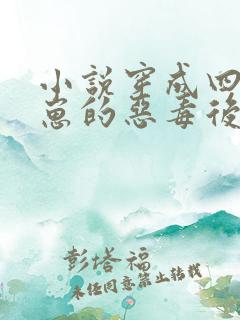 小說穿成四
崽的惡毒後
彭塔福
未任同意禁止转载